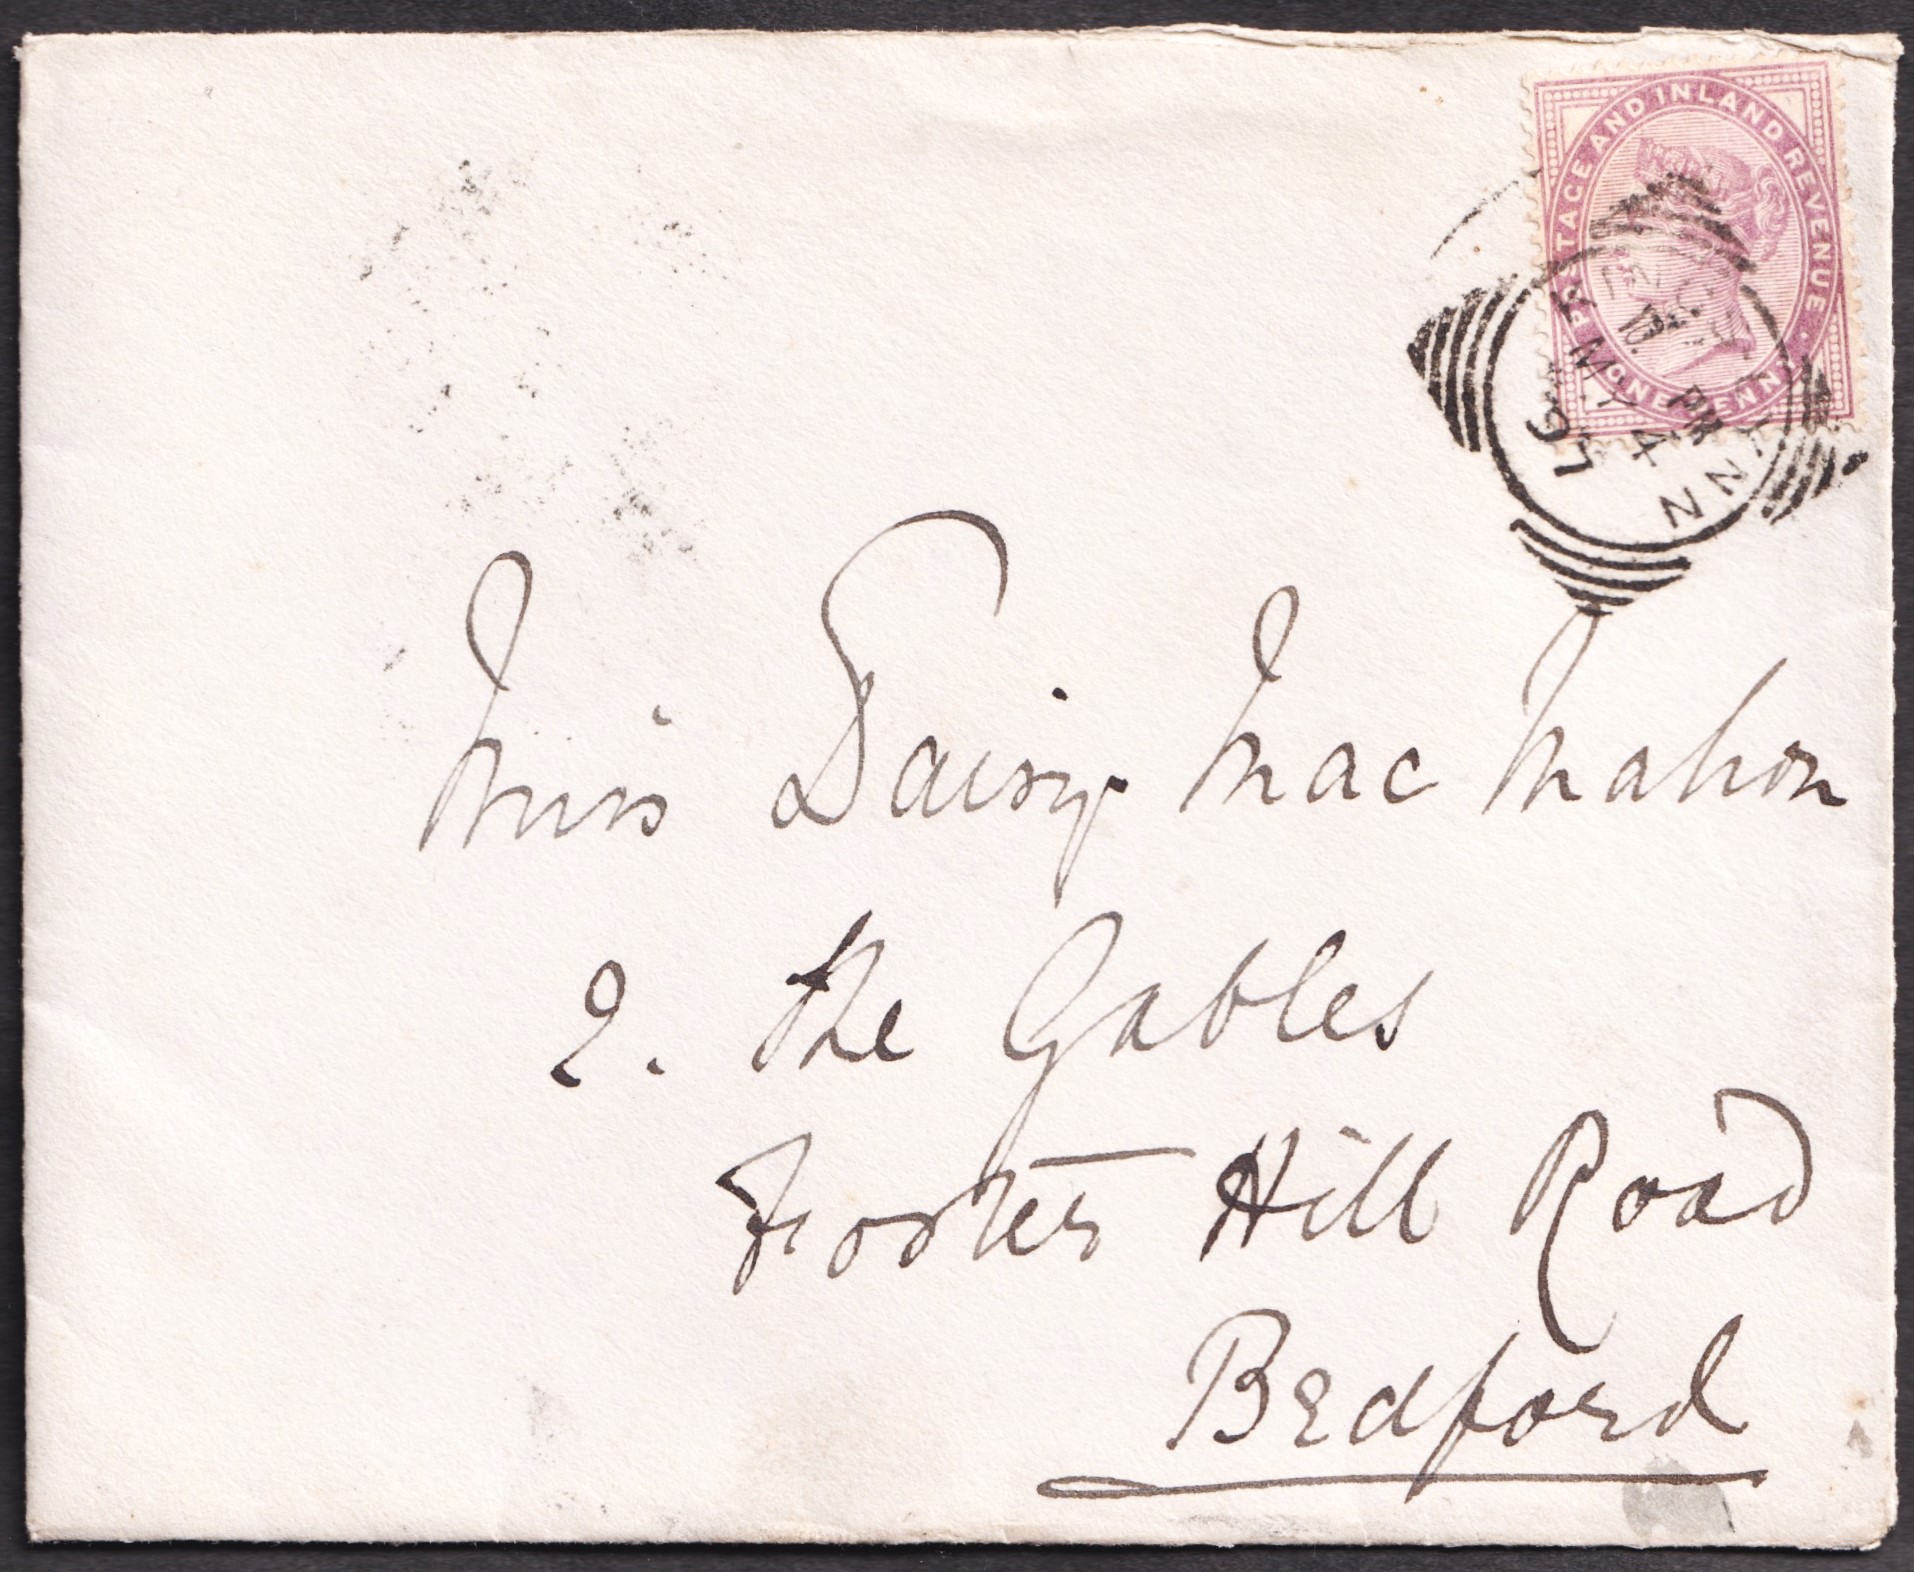 POSTAGE AND INLAND REVENUE.
ONE PENNY
LYNN
10 PM
MY 4
97
Miss Daisy Mac Mahon
2. The Gables
Foster Hill Road
Bedford